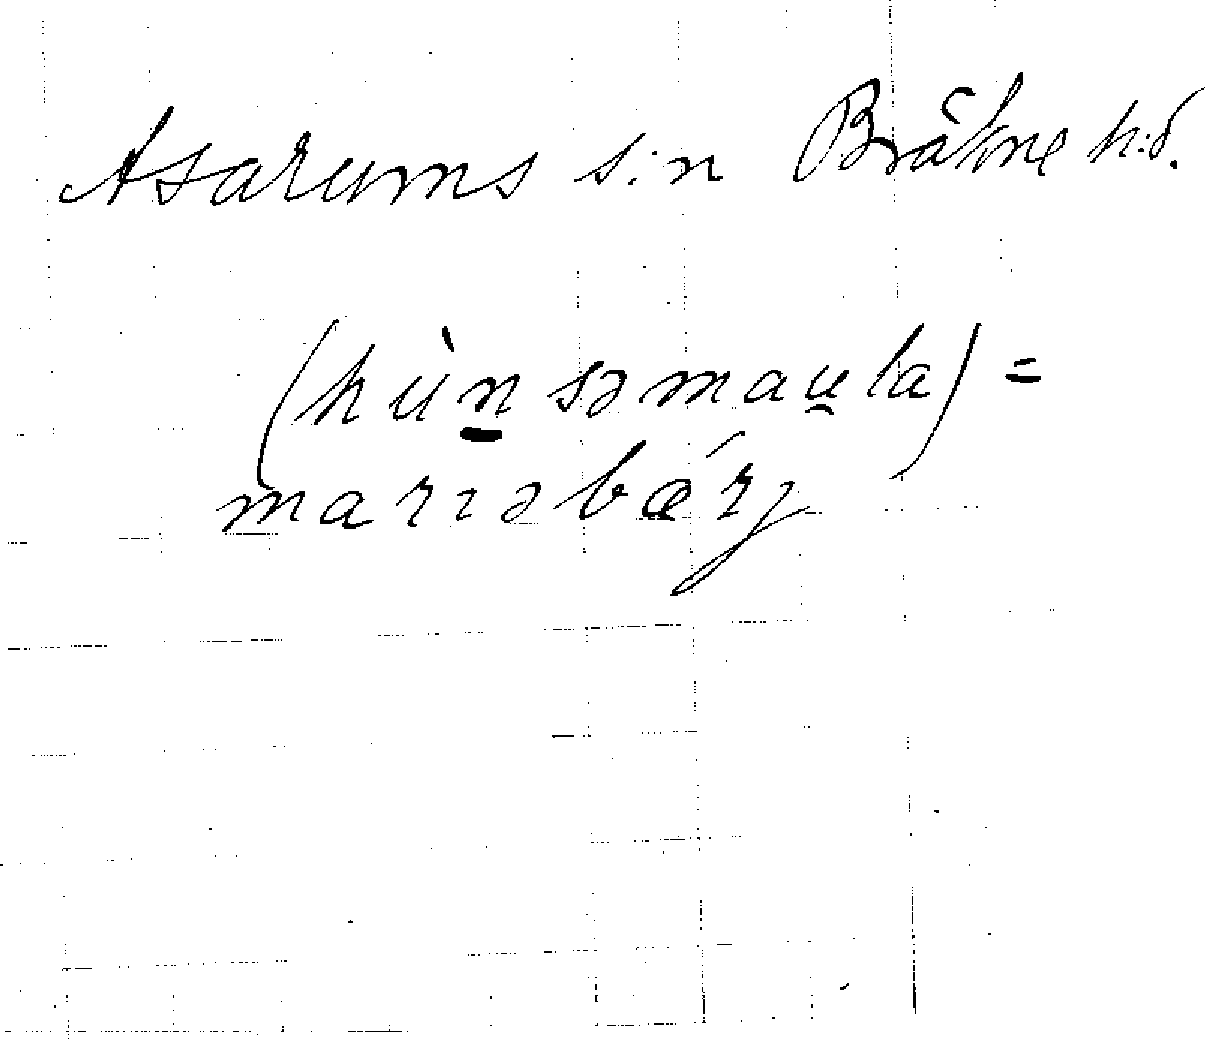 Asarums s:n Bräkne h:d.
(hùn̲səmau̯la) =
marıəbǽrȷ